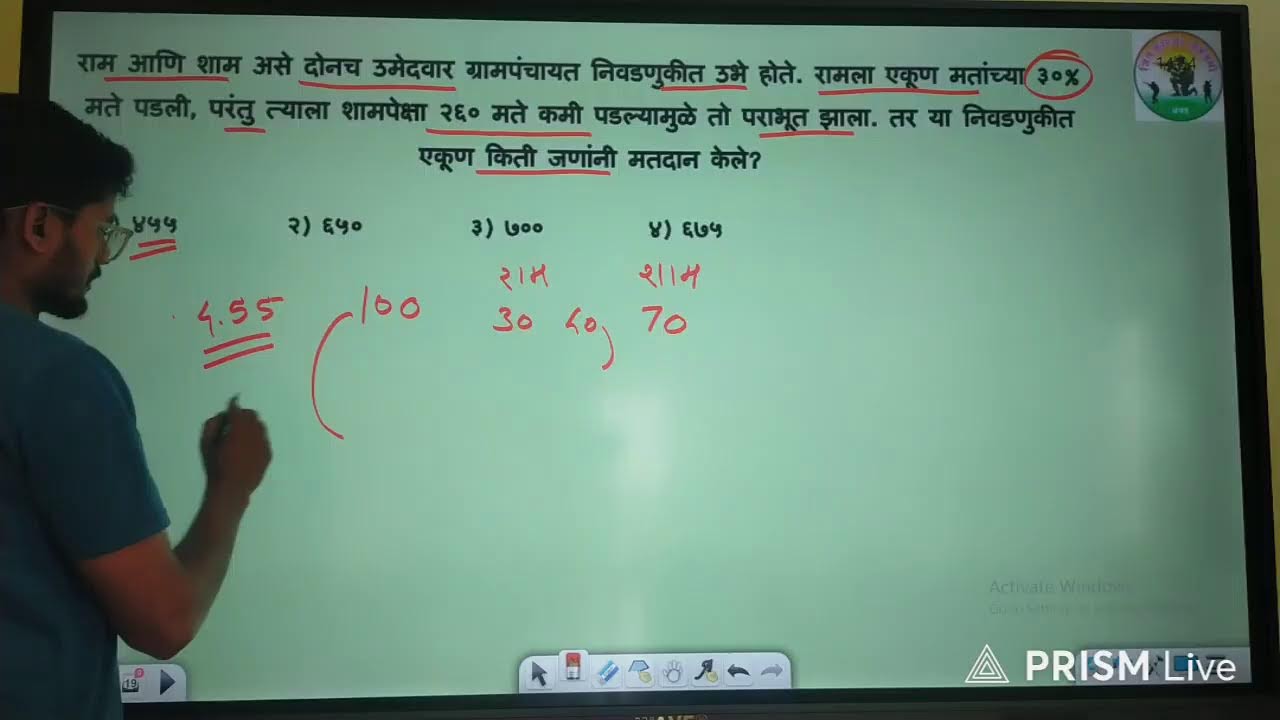 राम आणि शाम असे दोनच उमेदवार ग्रामपंचायत निवडणुकीत उभे होते. रामला एकूण मतांच्या ३०%
मते पडली, परंतु त्याला शामपेक्षा २६० मते कमी पडल्यामुळे तो पराभूत झाला. तर या निवडणुकीत
एकूण किती जणांनी मतदान केले?
४५५ २) ६५० ३) ७०० ४) ६७५
राम शाम
100 30 40 70
Activate Windows
PRISM Live